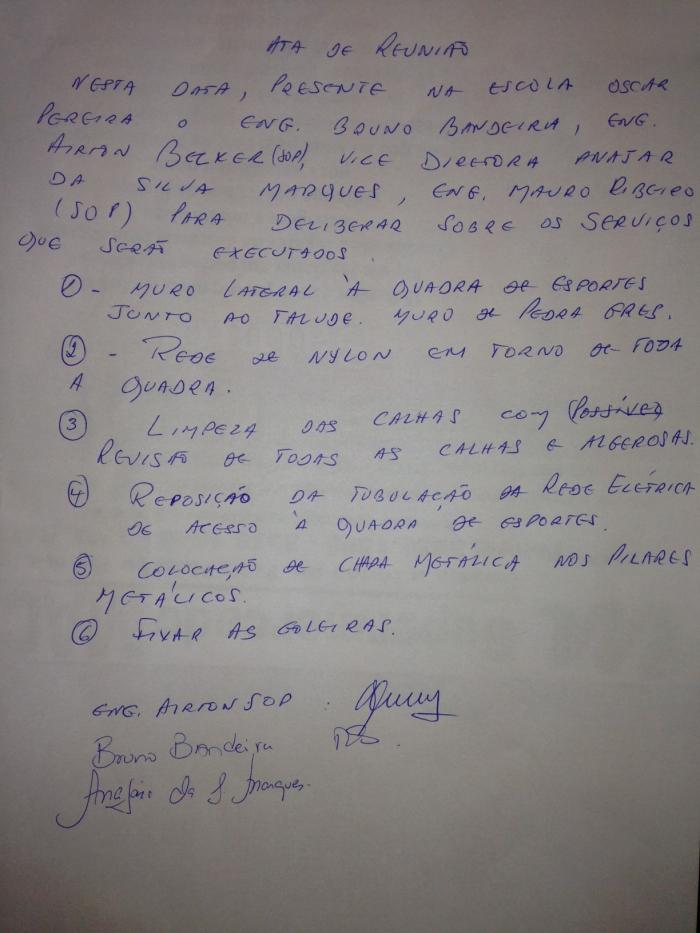 ATA DE REUNIÃO
NESTA DATA, PRESENTE NA ESCOLA OSCAR
PEREIRA O ENG. BRUNO BANDEIRA, ENG.
AIRTON BECKER (SOP), VICE DIRETORA ANAJAR
DA SILVA MARQUES, ENG. MAURO RIBEIRO
(SOP) PARA DELIBERAR SOBRE OS SERVIÇOS
QUE SERÃO EXECUTADOS.
1 - MURO LATERAL À QUADRA DE ESPORTES
JUNTO AO TALUDE. MURO DE PEDRA GRES.
2 - REDE DE NYLON EM TORNO DE TODA
A QUADRA.
3 LIMPEZA DAS CALHAS COM (POSSÍVEL)
REVISÃO DE TODAS AS CALHAS E ALGEROSAS.
4 REPOSIÇÃO DA TUBULAÇÃO DA REDE ELÉTRICA
DE ACESSO À QUADRA DE ESPORTES.
5 COLOCAÇÃO DE CHAPA METÁLICA NOS PILARES
METÁLICOS.
6 FIXAR AS GOLEIRAS.
ENG. AIRTON SOP :
Bruno Bandeira
Anajar da S. Marques.